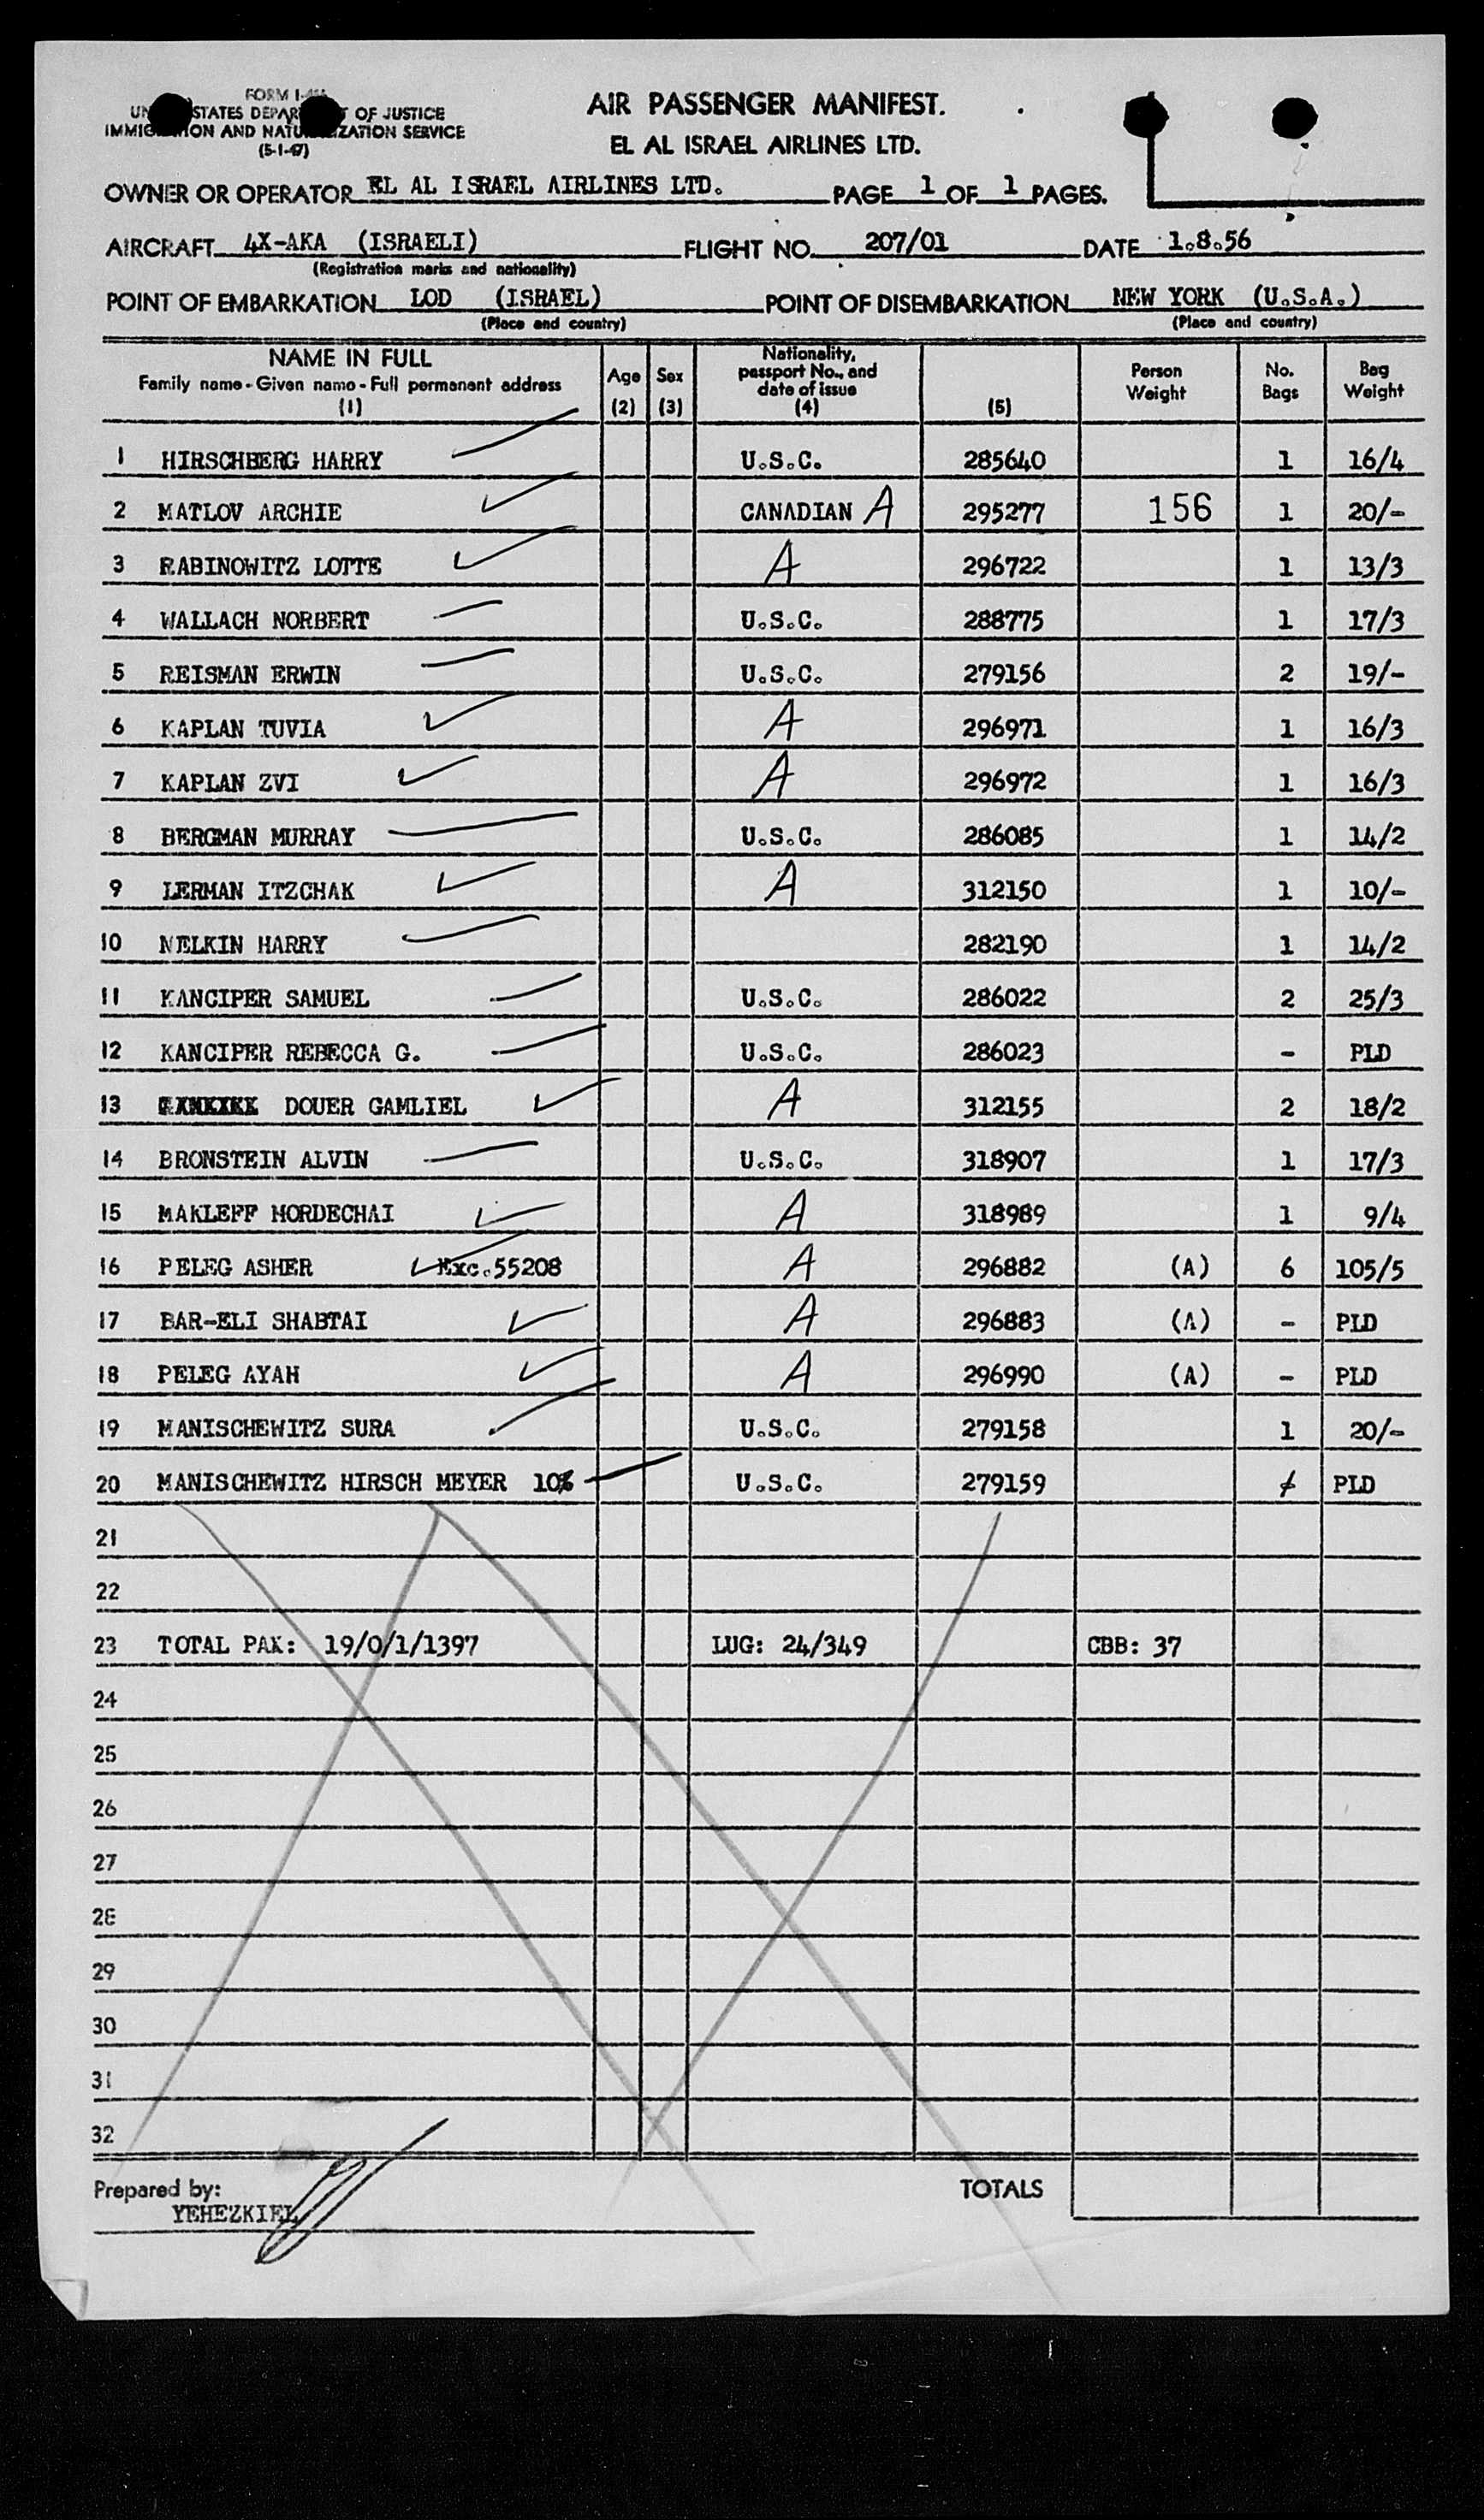 FORM I-
STATES DEPAR OF JUSTICE
IMMIG ON AND NATU ZATION SERVICE
(5-1-47)
AIR PASSENGER MANIFEST.
EL AL ISRAEL AIRLINES LTD.
OWNER OR OPERATOR EL AL ISRAEL AIRLINES LTD. PAGE 1 OF 1 PAGES.
AIRCRAFT 4X-AKA (ISRAELI) FLIGHT NO. 207/01 DATE 1.8.56
(Registration marks and nationality)
POINT OF EMBARKATION LOD (ISRAEL) POINT OF DISEMBARKATION NEW YORK (U.S.A.)
(Place and country) (Place and country)
NAME IN FULL
Family name - Given name - Full permanent address
(1)
Age
(2)
Sex
(3)
Nationality,
passport No., and
date of issue
(4)
(5)
Person
Weight
No.
Bags
Bag
Weight
1 HIRSCHBERG HARRY U.S.C. 285640 1 16/4
2 MATLOV ARCHIE CANADIAN A 295277 156 1 20/-
3 RABINOWITZ LOTTE A 296722 1 13/3
4 WALLACH NORBERT U.S.C. 288775 1 17/3
5 REISMAN ERWIN U.S.C. 279156 2 19/-
6 KAPLAN TUVIA A 296971 1 16/3
7 KAPLAN ZVI A 296972 1 16/3
8 BERGMAN MURRAY U.S.C. 286085 1 14/2
9 LERMAN ITZCHAK A 312150 1 10/-
10 NELKIN HARRY 282190 1 14/2
11 KANCIPER SAMUEL U.S.C. 286022 2 25/3
12 KANCIPER REBECCA G. U.S.C. 286023 - PLD
13 DOUER GAMLIEL A 312155 2 18/2
14 BRONSTEIN ALVIN U.S.C. 318907 1 17/3
15 MAKLEFF MORDECHAI A 318989 1 9/4
16 PELEG ASHER Exc.55208 A 296882 (A) 6 105/5
17 BAR-ELI SHABTAI A 296883 (A) - PLD
18 PELEG AYAH A 296990 (A) - PLD
19 MANISCHEWITZ SURA U.S.C. 279158 1 20/-
20 MANISCHEWITZ HIRSCH MEYER 10% U.S.C. 279159 PLD
21
22
23 TOTAL PAX: 19/0/1/1397 LUG: 24/349 CBB: 37
24
25
26
27
28
29
30
31
32
Prepared by: TOTALS
YEHEZKIEL